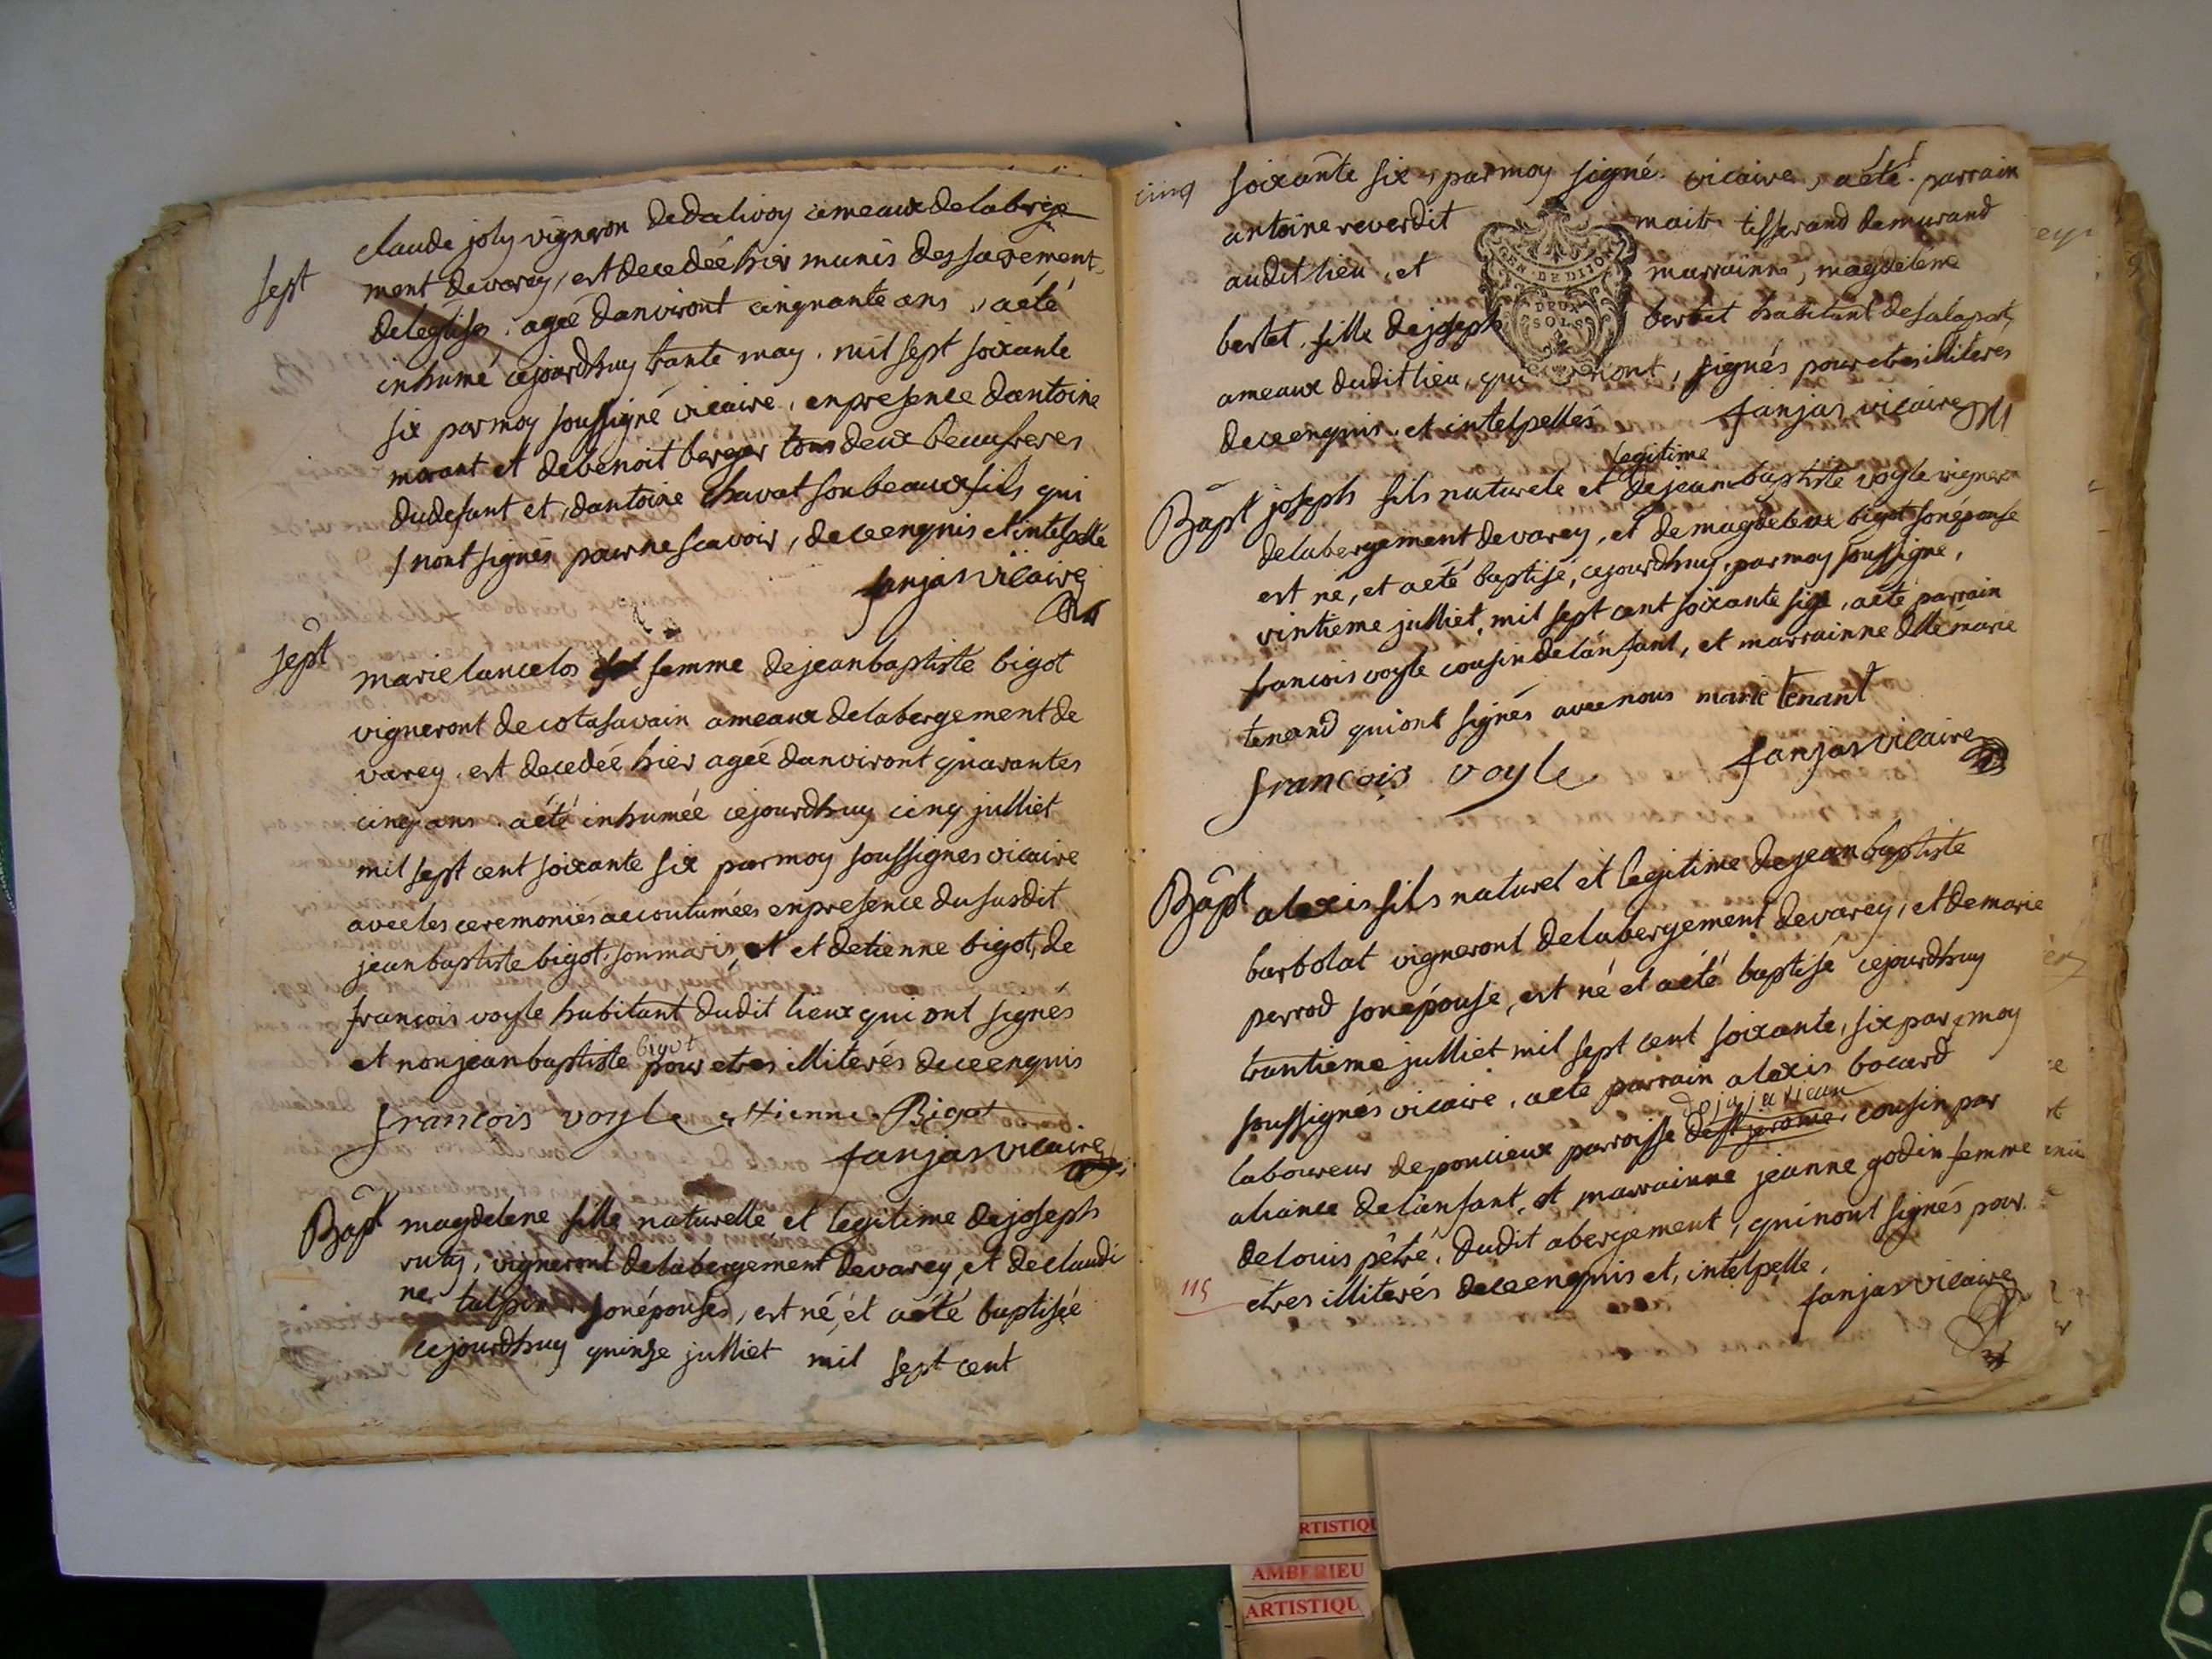 claude joly vigneron dedalivoy ameaux delaberge
sept
ment devarey, est decedée hier munis des sacrement
deleglise. ageé danviront cinquante ans, aété
inhumé cejourdhuy trante may. mil sept soixante
six parmoy soussigné vicaire, enpresence dantoine
morant et debenoit berger tous deux beaufreres
dudefunt et, dantoine chavat son beauxfils qui
nont signés pour nescavoir, deceenquis et intelpellé
fanjas vicaire
sept
marie lancelos femme dejeanbaptiste bigot
vigneront decotasavain ameaux delabergement de
varey. est decedée hier ageé danviront quarantes
cinq ans. aété inhumée cejourdhuy cinq julliet
mil sept cent soixante six par moy soussignes vicaire
avec les ceremonies accoutumées enpresence dususdit
jeanbaptiste bigot. son maris, et et detienne bigot, de
francois voyle habitant dudit lieux qui ont signés
et non jeanbaptiste bigot pour etres illiterés deceenquis
francois voyle ettienne Bigot
fanjas vicaire
Bapt magdelene fille naturelle et legitime dejoseph
ruty, vigneront delabergement devarey, et declaudi
ne talpin sonépouses, est né, et aété baptisée
cejourdhuy quinze julliet mil sept cent
cinq
soixante six, parmoy signé vicaire, aété parrain
antoine reverdit maitr tisserand demurand
audit lieu, et marrainne, magdelene
bertet. fille dejoseph bertet habitant desalaport,
ameaux dudit lieu, qui nont, signés pour etres illiteres
deceenquis. et intelpellés fanjas vicaire
GEN. DE DIJON
DEUX
SOLS
Bapt joseph fils naturele et legitime dejeanbaptiste voyle vigner
delabergement devarey, et demagdelene bigot sonépouse
est né, et aété baptisé, cejourdhuy, parmoy soussigne,
vintieme julliet, mil sept cent soixante sixe, aété parrain
francois voyle cousin delanfant, et marrainne dlle marie
tenand quiont signés avec nous marie tenant
francois voyle fanjas vicaire
Bapt alexis fils naturel et legitime dejeanbaptiste
barbolat vigneront delabergement devarey, et demarie
perrod sonépouse, est né et aété baptisé cejourdhuy
trantieme julliet mil sept cent soixante, six par moy
soussignés vicaire, aete parrain alexis bocard
laboureur deponcieux parroisse de st jerome cousin par
aliance delanfant, et marrainne jeanne godin femme
delouis pêtré. dudit abergement, quinont signés pour
etres illiterés deceenquis et, intelpelle.
fanjas vicaire
115
RTISTIQU
AMBERIEU
ARTISTIQU